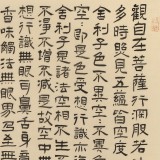 觀自在菩薩行深般若
多時照見五蘊皆空度
舍利子色不異空不異
舍利子是諸法空相不生
不增不減是故空中
行識無眼耳鼻舌身意
香味觸法無眼界乃至無